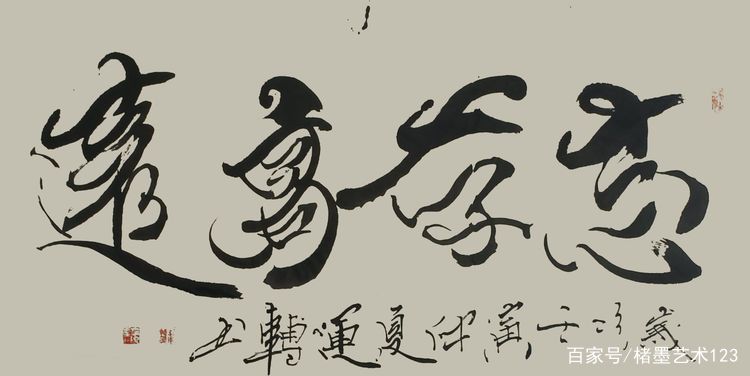 志存高遠
歲次壬寅仲夏運轉书
百家号/楮墨艺术123